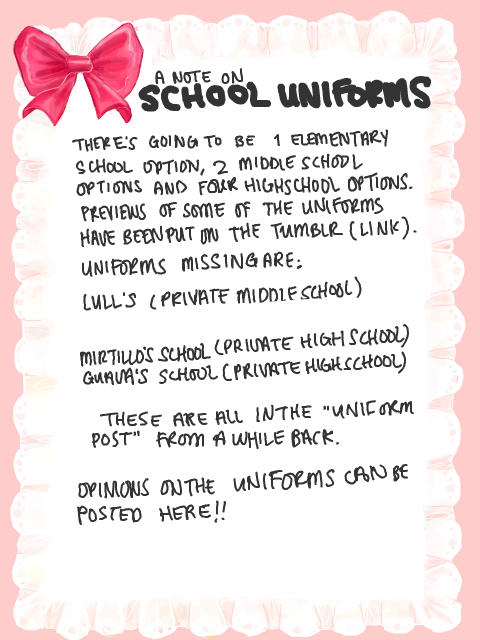 A NOTE ON
SCHOOL UNIFORMS
THERE'S GOING TO BE 1 ELEMENTARY
SCHOOL OPTION, 2 MIDDLE SCHOOL
OPTIONS AND FOUR HIGHSCHOOL OPTIONS.
PREVIEWS OF SOME OF THE UNIFORMS
HAVE BEEN PUT ON THE TUMBLR (LINK).
UNIFORMS MISSING ARE:
LULL'S (PRIVATE MIDDLE SCHOOL)
MIRTILLO'S SCHOOL (PRIVATE HIGH SCHOOL)
GUAVA'S SCHOOL (PRIVATE HIGH SCHOOL)
THESE ARE ALL IN THE "UNIFORM
POST" FROM A WHILE BACK.
OPINIONS ON THE UNIFORMS CAN BE
POSTED HERE!!